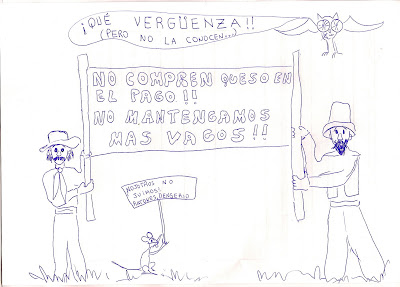 ¡QUÉ VERGÜENZA!!
(PERO NO LA CONOCEN...)
NO COMPREN QUESO EN
EL PAGO!!
NO MANTENGAMOS
MAS VAGOS!!
NOSOTROS NO
JUIMOS!